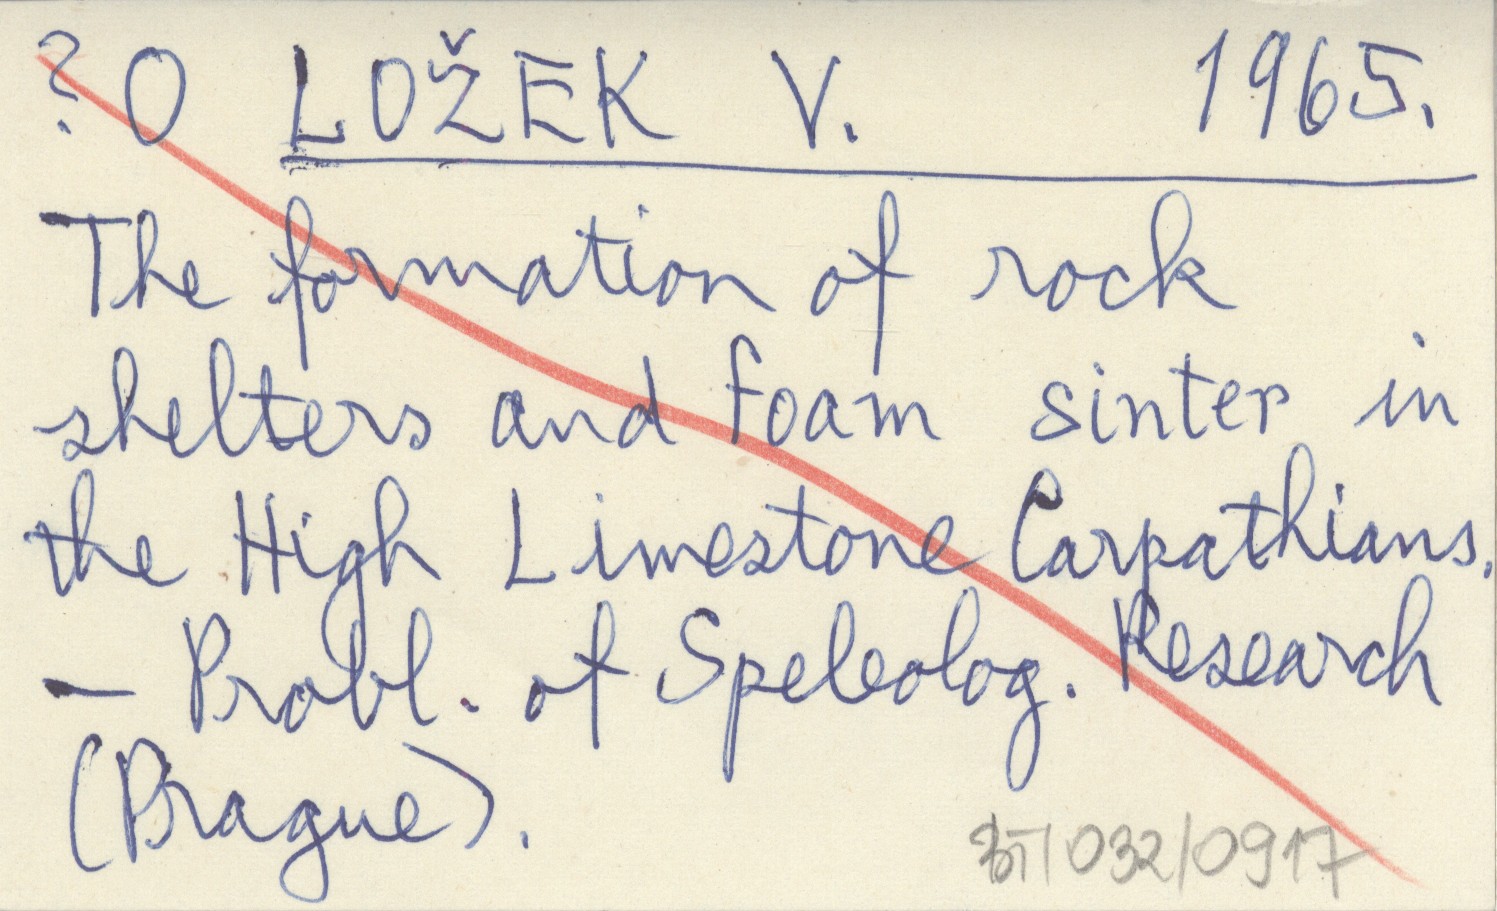 ? O LOŽEK V. 1965.
The formation of rock
shelters and foam sinter in
the High Limestone Carpathians.
— Probl. of Speleolog. Research
(Prague).
/032/0917